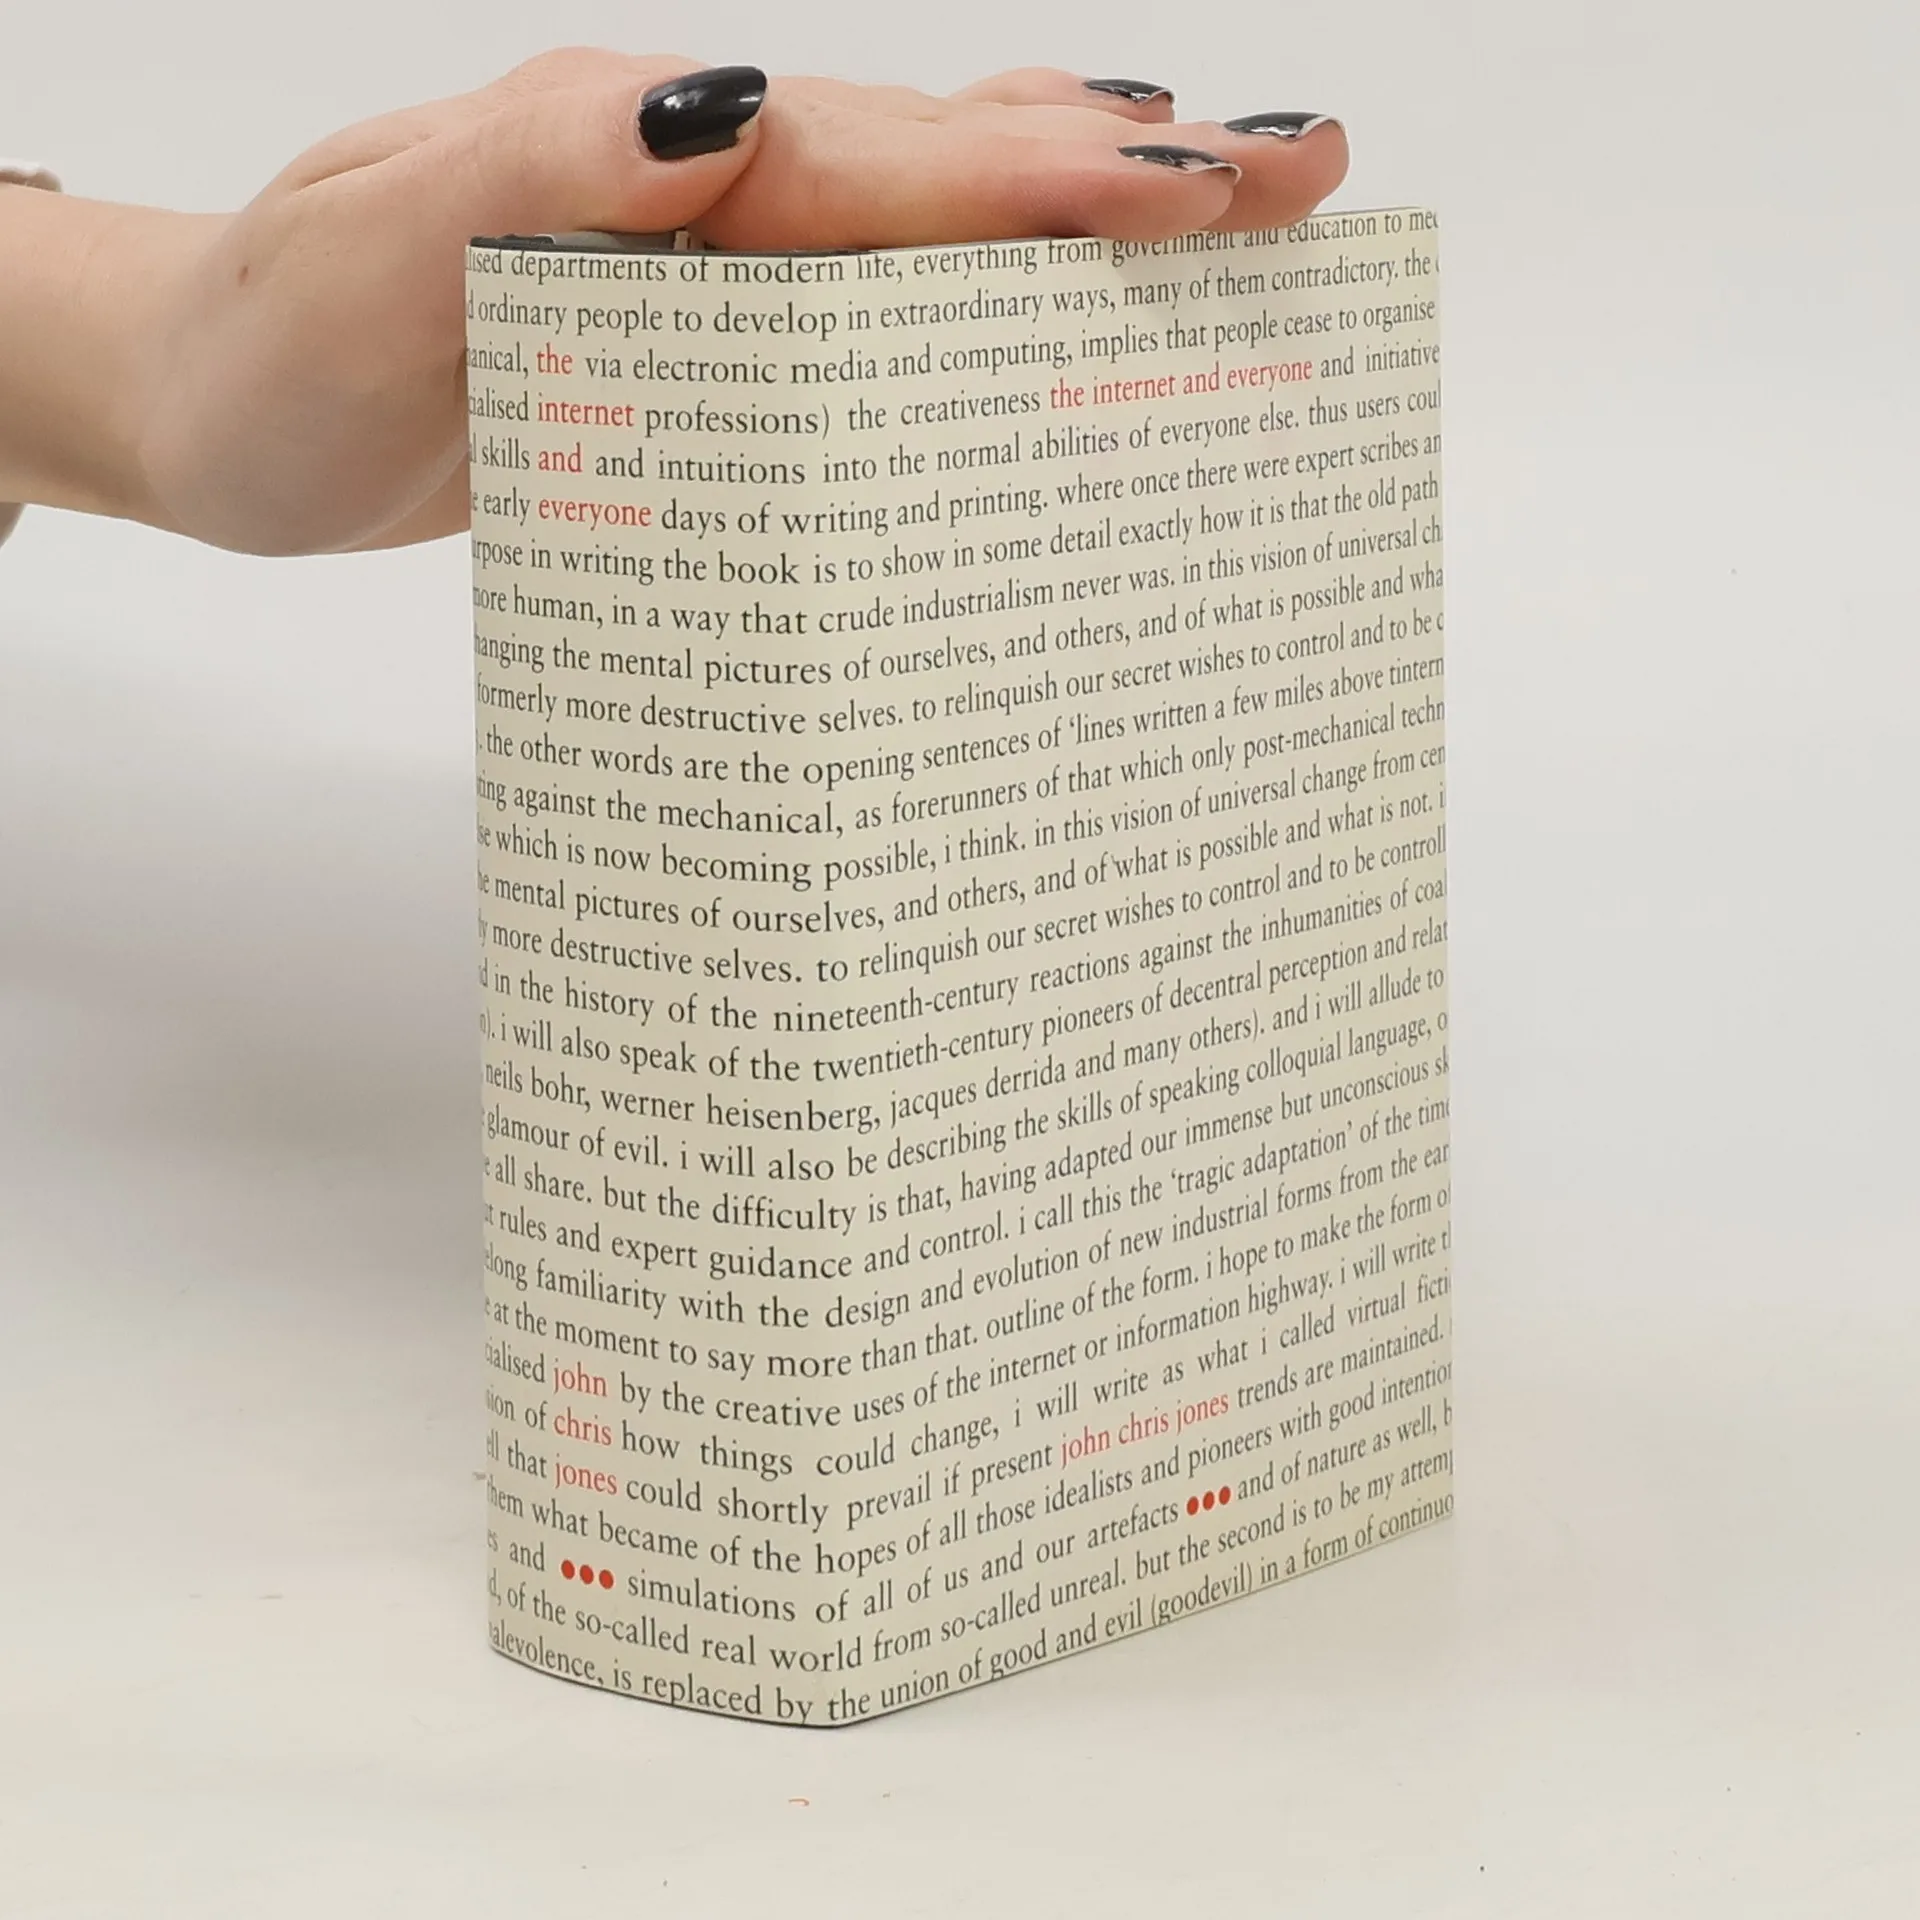 departments of modern life, everything from government and education to
ordinary people to develop in extraordinary ways, many of them contradictory. the
the via electronic media and computing, implies that people cease to organise
internet professions) the creativeness the internet and everyone and initiative
skills and and intuitions into the normal abilities of everyone else. thus users
early everyone days of writing and printing. where once there were expert scribes
in writing the book is to show in some detail exactly how it is that the old path
human, in a way that crude industrialism never was. in this vision of universal
the mental pictures of ourselves, and others, and of what is possible and
formerly more destructive selves. to relinquish our secret wishes to control and to be
. the other words are the opening sentences of ‘lines written a few miles above tintern
against the mechanical, as forerunners of that which only post-mechanical
which is now becoming possible, i think. in this vision of universal change from
mental pictures of ourselves, and others, and of what is possible and what is not.
more destructive selves. to relinquish our secret wishes to control and to be
in the history of the nineteenth-century reactions against the inhumanities of
). i will also speak of the twentieth-century pioneers of decentral perception and
neils bohr, werner heisenberg, jacques derrida and many others). and i will allude to
glamour of evil. i will also be describing the skills of speaking colloquial language,
all share. but the difficulty is that, having adapted our immense but unconscious
rules and expert guidance and control. i call this the ‘tragic adaptation’ of the
familiarity with the design and evolution of new industrial forms from the
at the moment to say more than that. outline of the form. i hope to make the form
john by the creative uses of the internet or information highway. i will write
of chris how things could change, i will write as what i called virtual
that jones could shortly prevail if present john chris jones trends are maintained.
what became of the hopes of all those idealists and pioneers with good
and ●●● simulations of all of us and our artefacts ●●● and of nature as well,
of the so-called real world from so-called unreal. but the second is to be my
is replaced by the union of good and evil (goodevil) in a form of